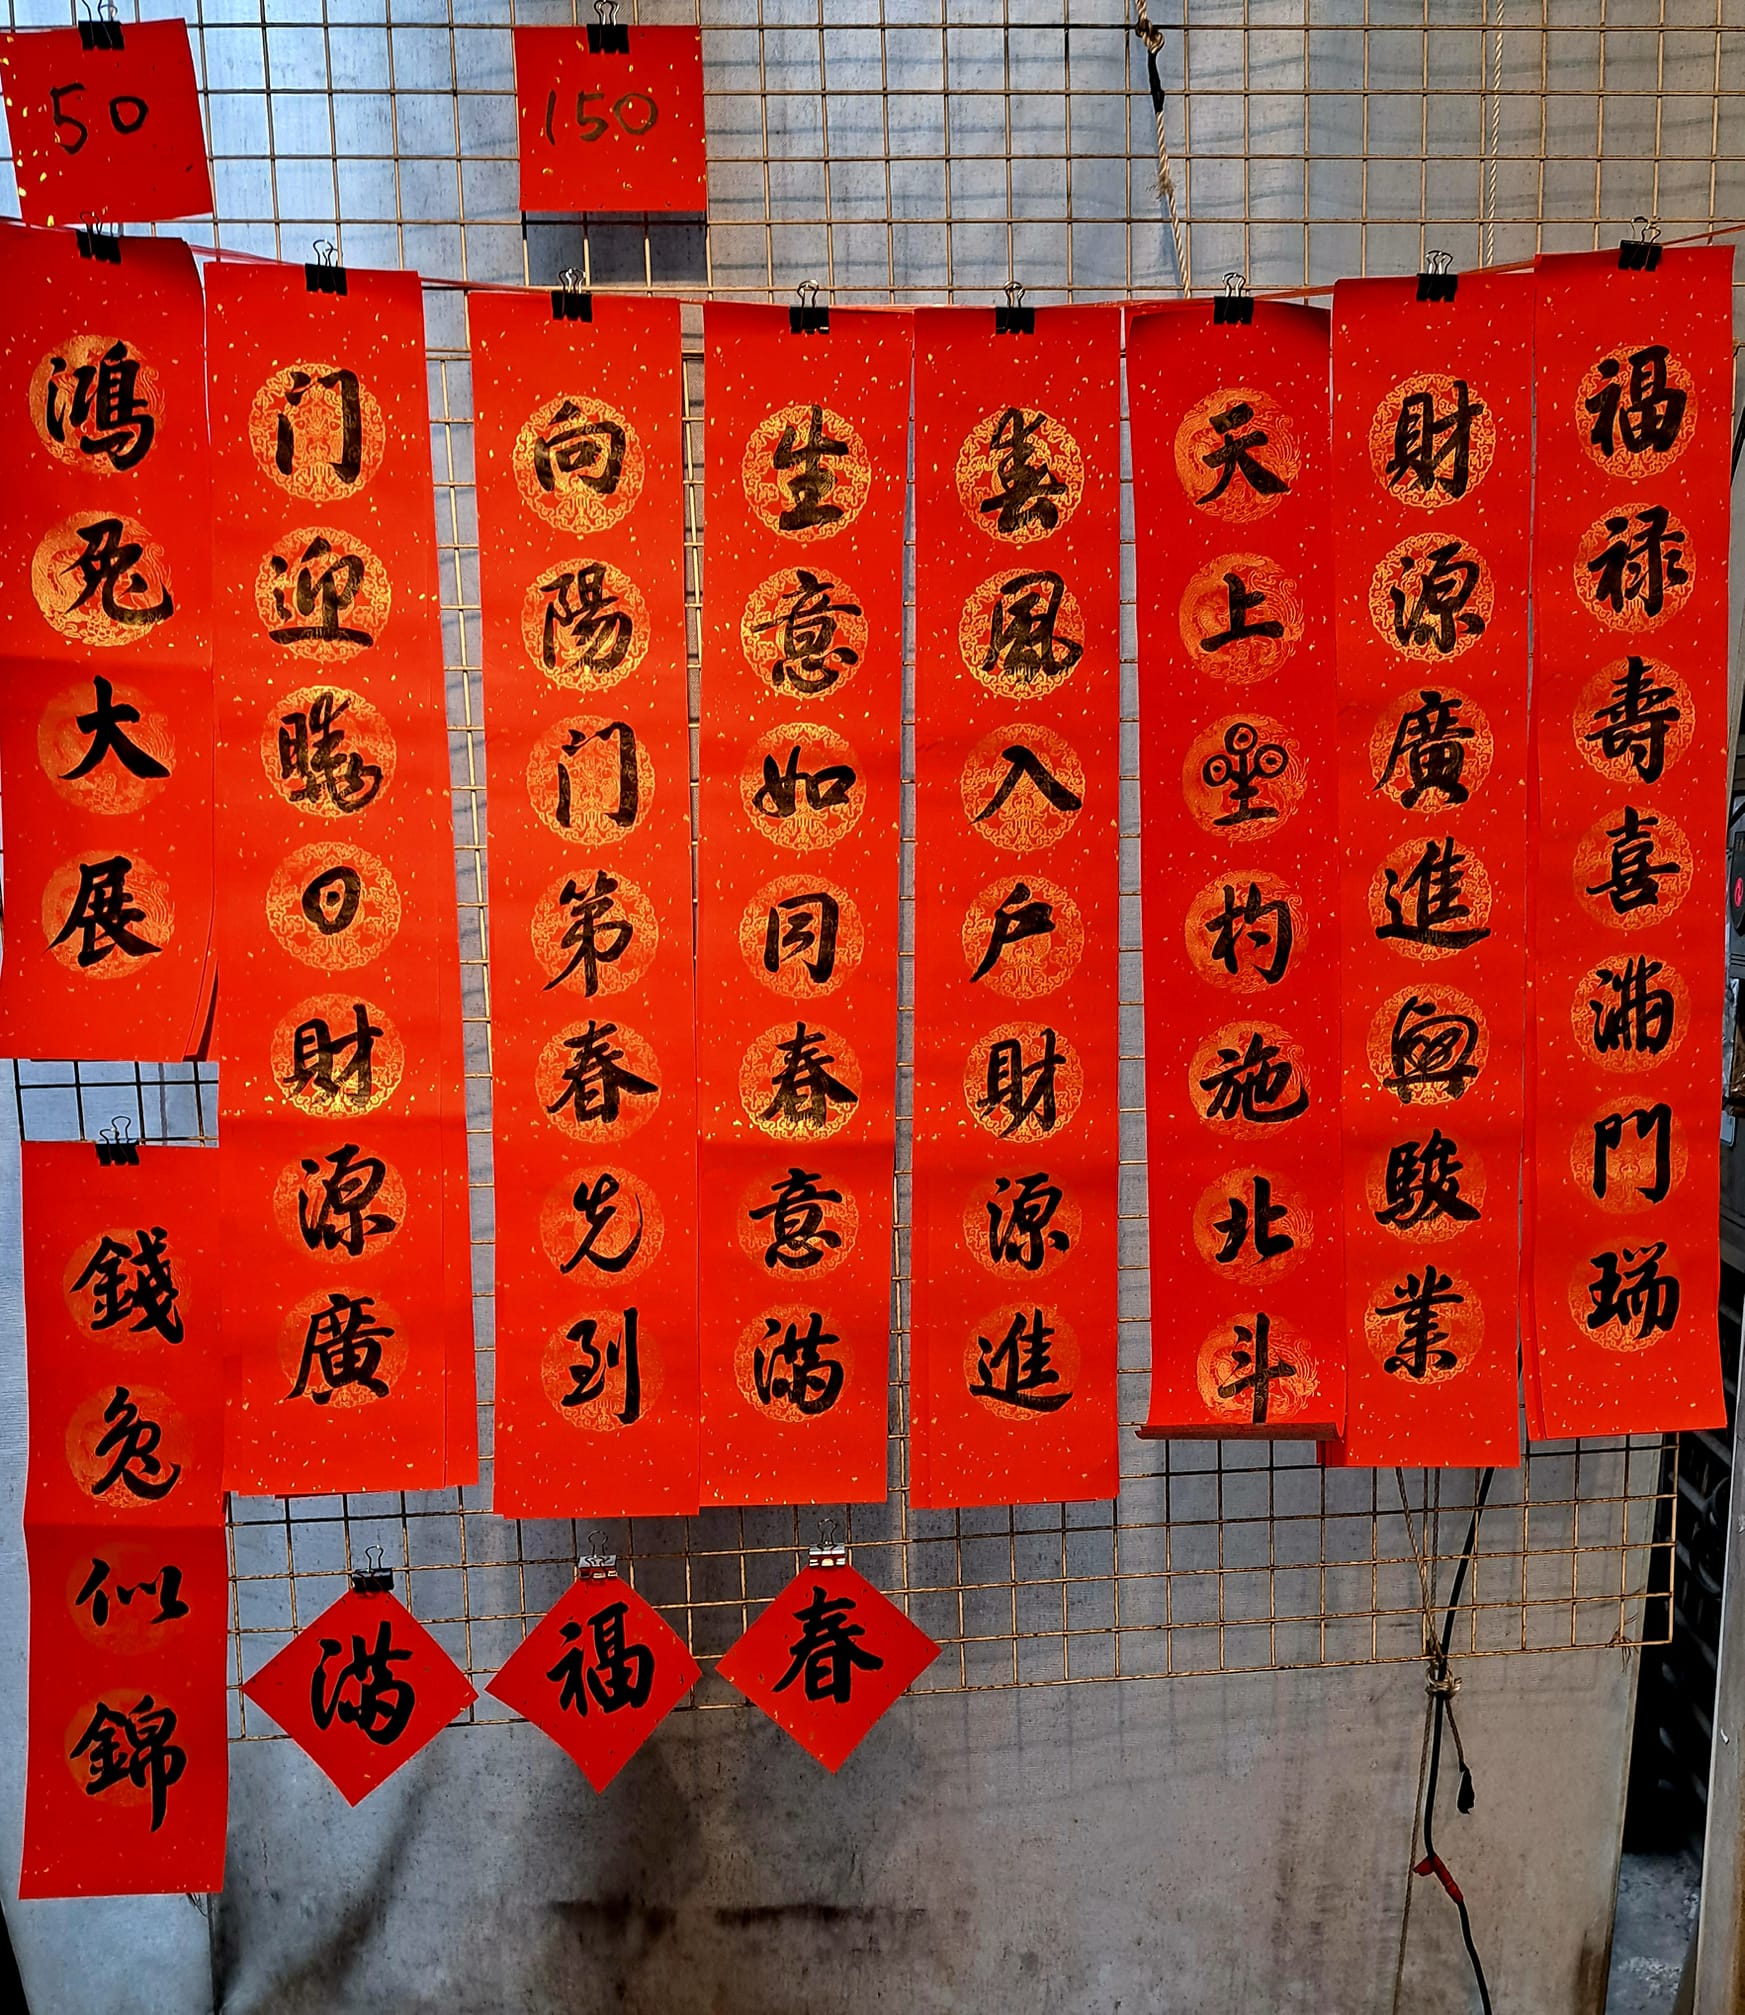 50
150
福禄壽喜滿門瑞
財源廣進興駿業
天上曐杓施北斗
春風入戶財源進
生意如同春意滿
向陽门第春先到
门迎曉日財源廣
鴻兔大展
錢兔似錦
春
福
滿